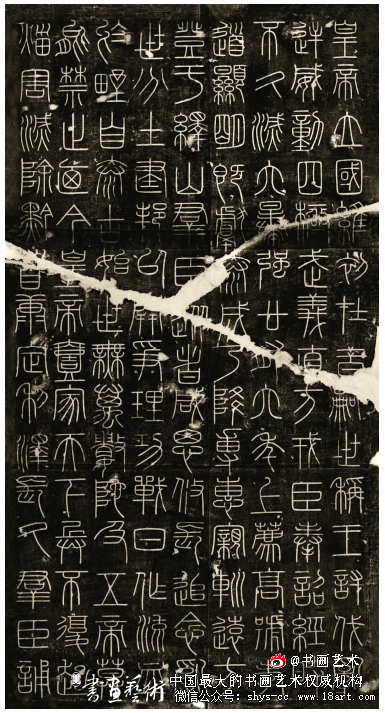 皇帝立國維初在昔嗣世稱王討伐
逆威動四極武義直方戎臣奉詔經
不久滅六暴強廿有六年上薦高號
道顯明既獻泰成乃降專惠親巡遠方
登于繹山群臣從者咸思攸長追念亂
世分土建邦以開爭理功戰日作流血
於野自泰古始世無萬數陀及五帝莫
能禁止迺今皇帝壹家天下兵不復起
災害滅除黔首康定利澤長久群臣誦
@书画艺术
書畫藝術
中国最大的书画艺术权威机构
微信公众号：shys-cc www.18art.com